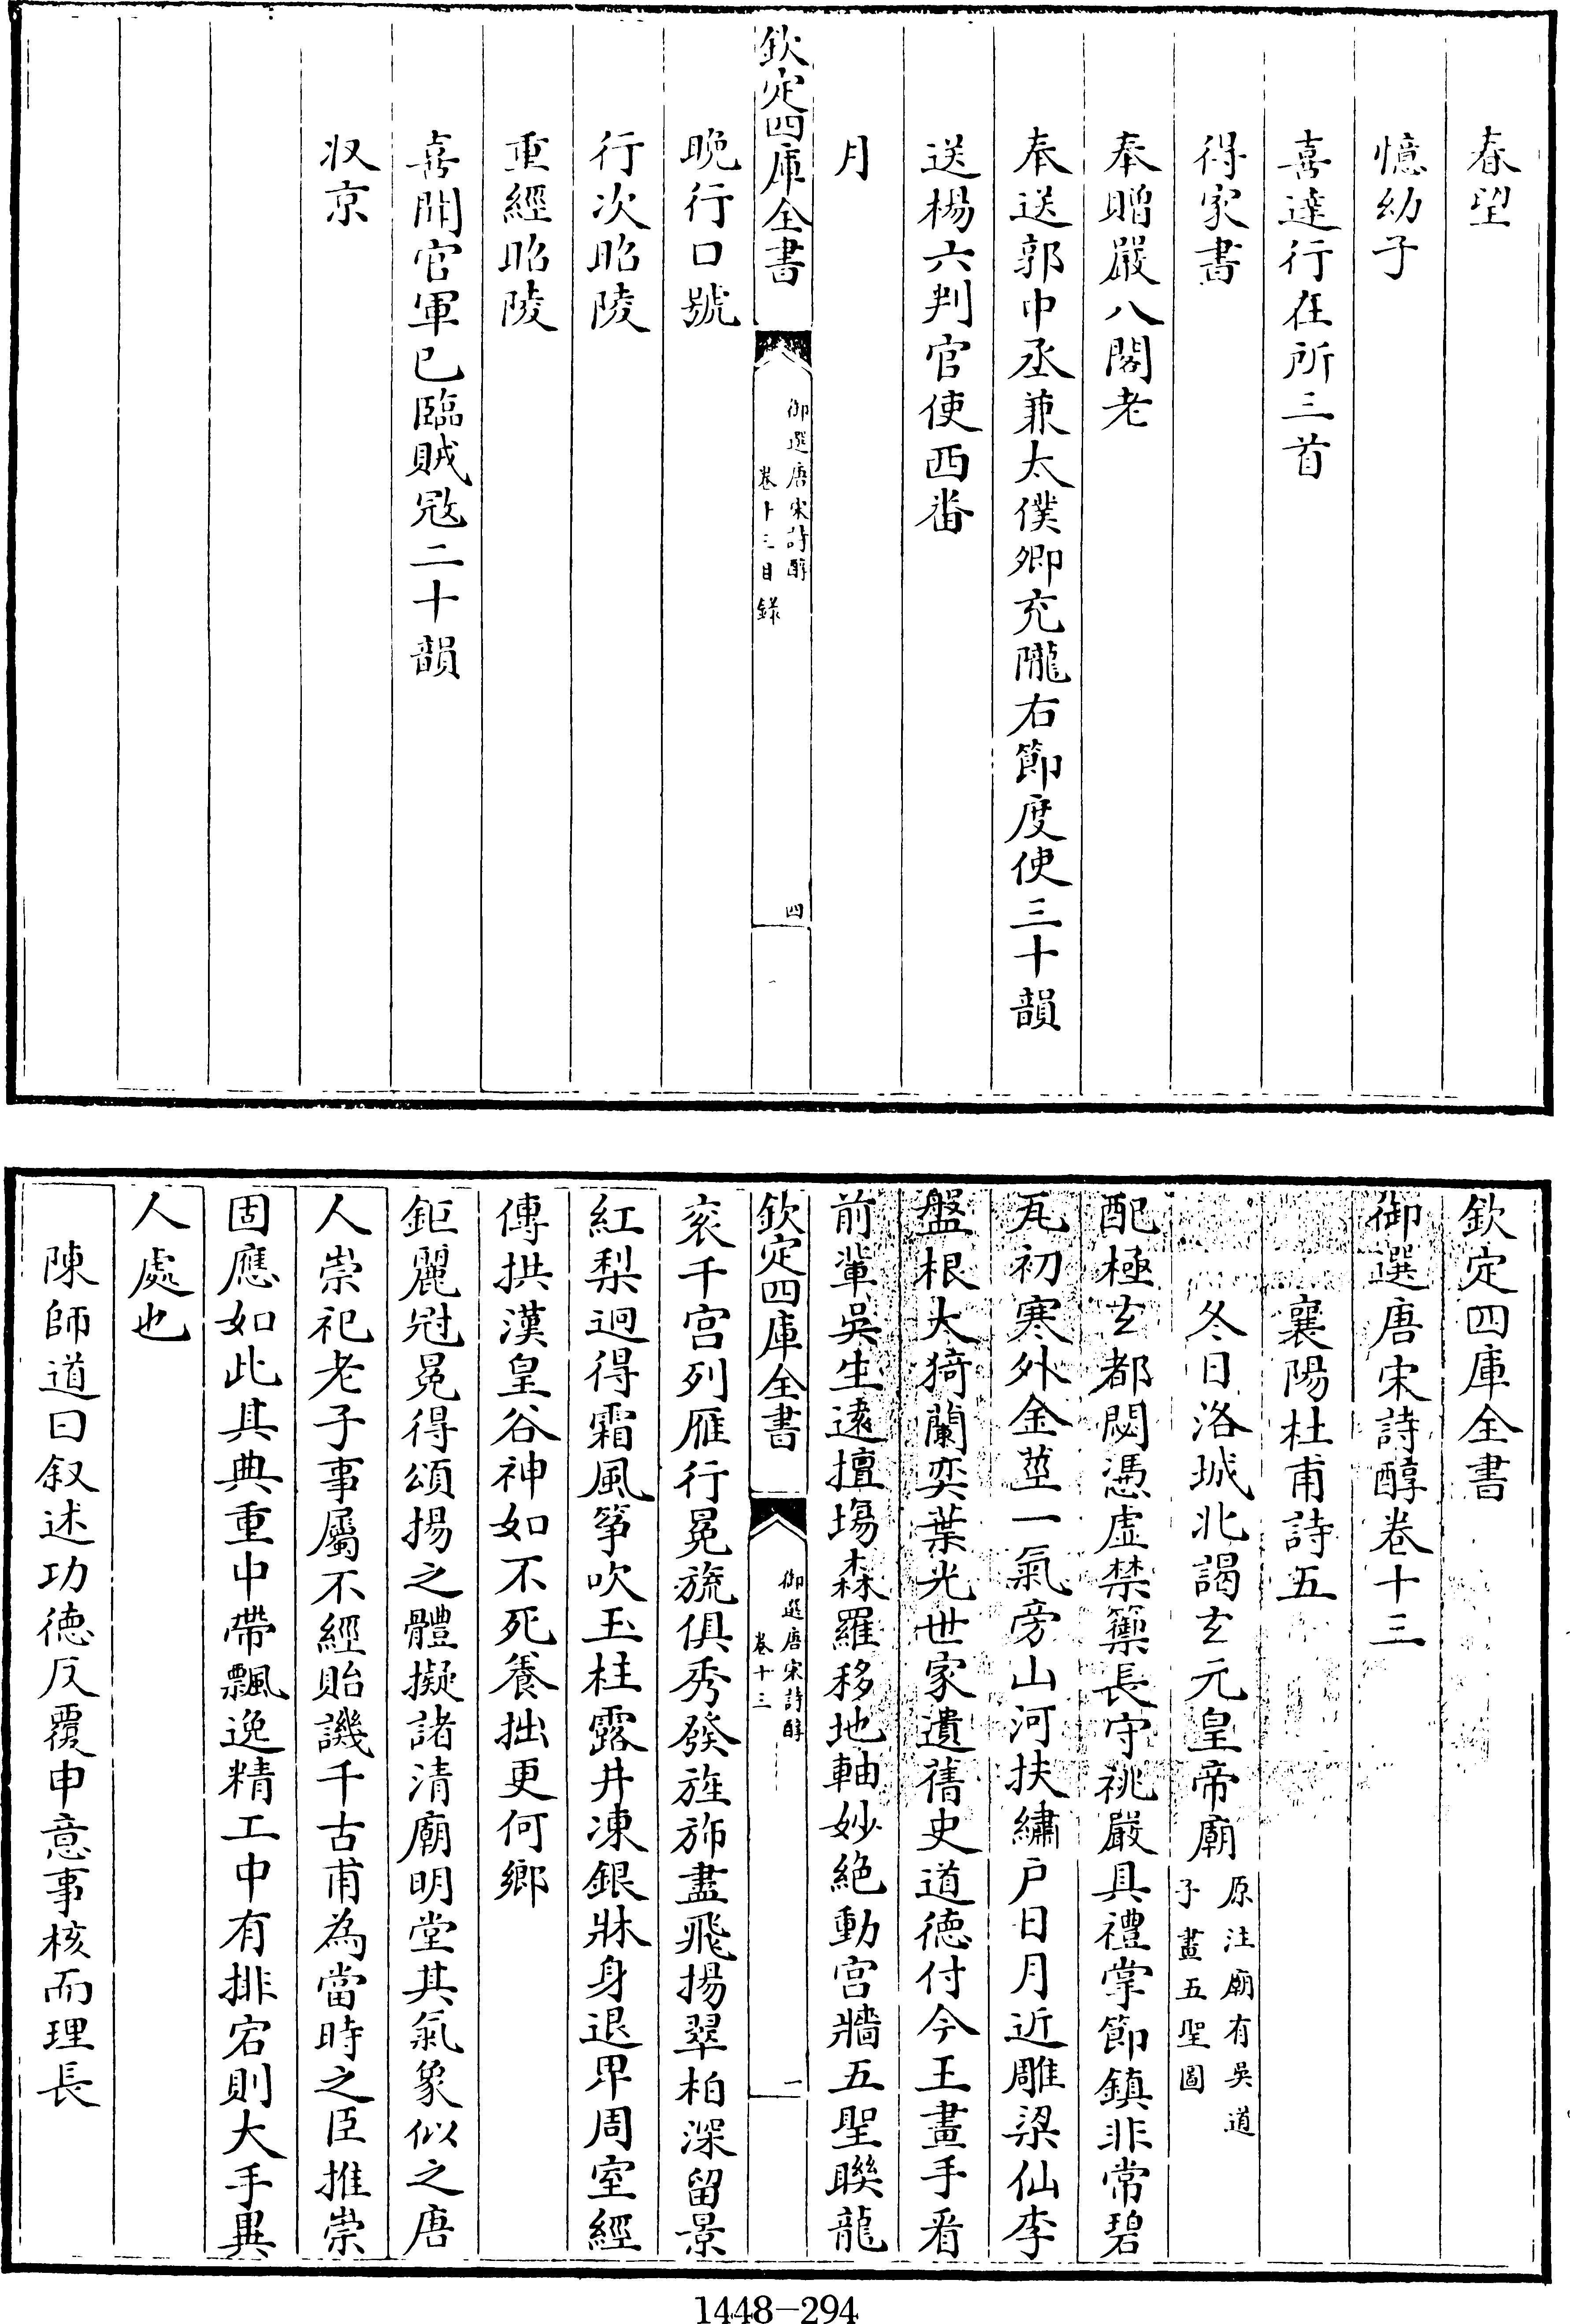 春望
憶幼子
喜達行在所三首
得家書
奉贈嚴八閣老
奉送郭中丞兼太僕卿充隴右節度使三十韻
送楊六判官使西番
月
欽定四庫全書
御選唐宋詩醇
卷十三目錄
四
晚行口號
行次昭陵
重經昭陵
喜聞官軍已臨賊㓂二十韻
收京
欽定四庫全書
御選唐宋詩醇卷十三
襄陽杜甫詩五
冬日洛城北謁玄元皇帝廟
原注廟有吳道
子畫五聖圖
配極玄都閟憑虛禁籞長守祧嚴具禮掌節鎮非常碧
瓦初寒外金莖一氣旁山河扶繡户日月近雕梁仙李
盤根大猗蘭奕葉光世家遺舊史道德付今王畫手看
前輩吳生遠擅塲森羅移地軸妙絶動宫牆五聖聯龍
欽定四庫全書
御選唐宋詩醇
卷十三
一
衮千官列雁行冕旒俱秀發旌斾盡飛揚翠柏深留景
紅梨迥得霜風筝吹玉柱露井凍銀牀身退卑周室經
傳拱漢皇谷神如不死養拙更何鄉
鉅麗冠冕得頌揚之體擬諸清廟明堂其氣象似之唐
人崇祀老子事屬不經貽譏千古甫為當時之臣推崇
固應如此其典重中帶飄逸精工中有排宕則大手異
人處也
陳師道曰叙述功德反覆申意事核而理長
1448-294